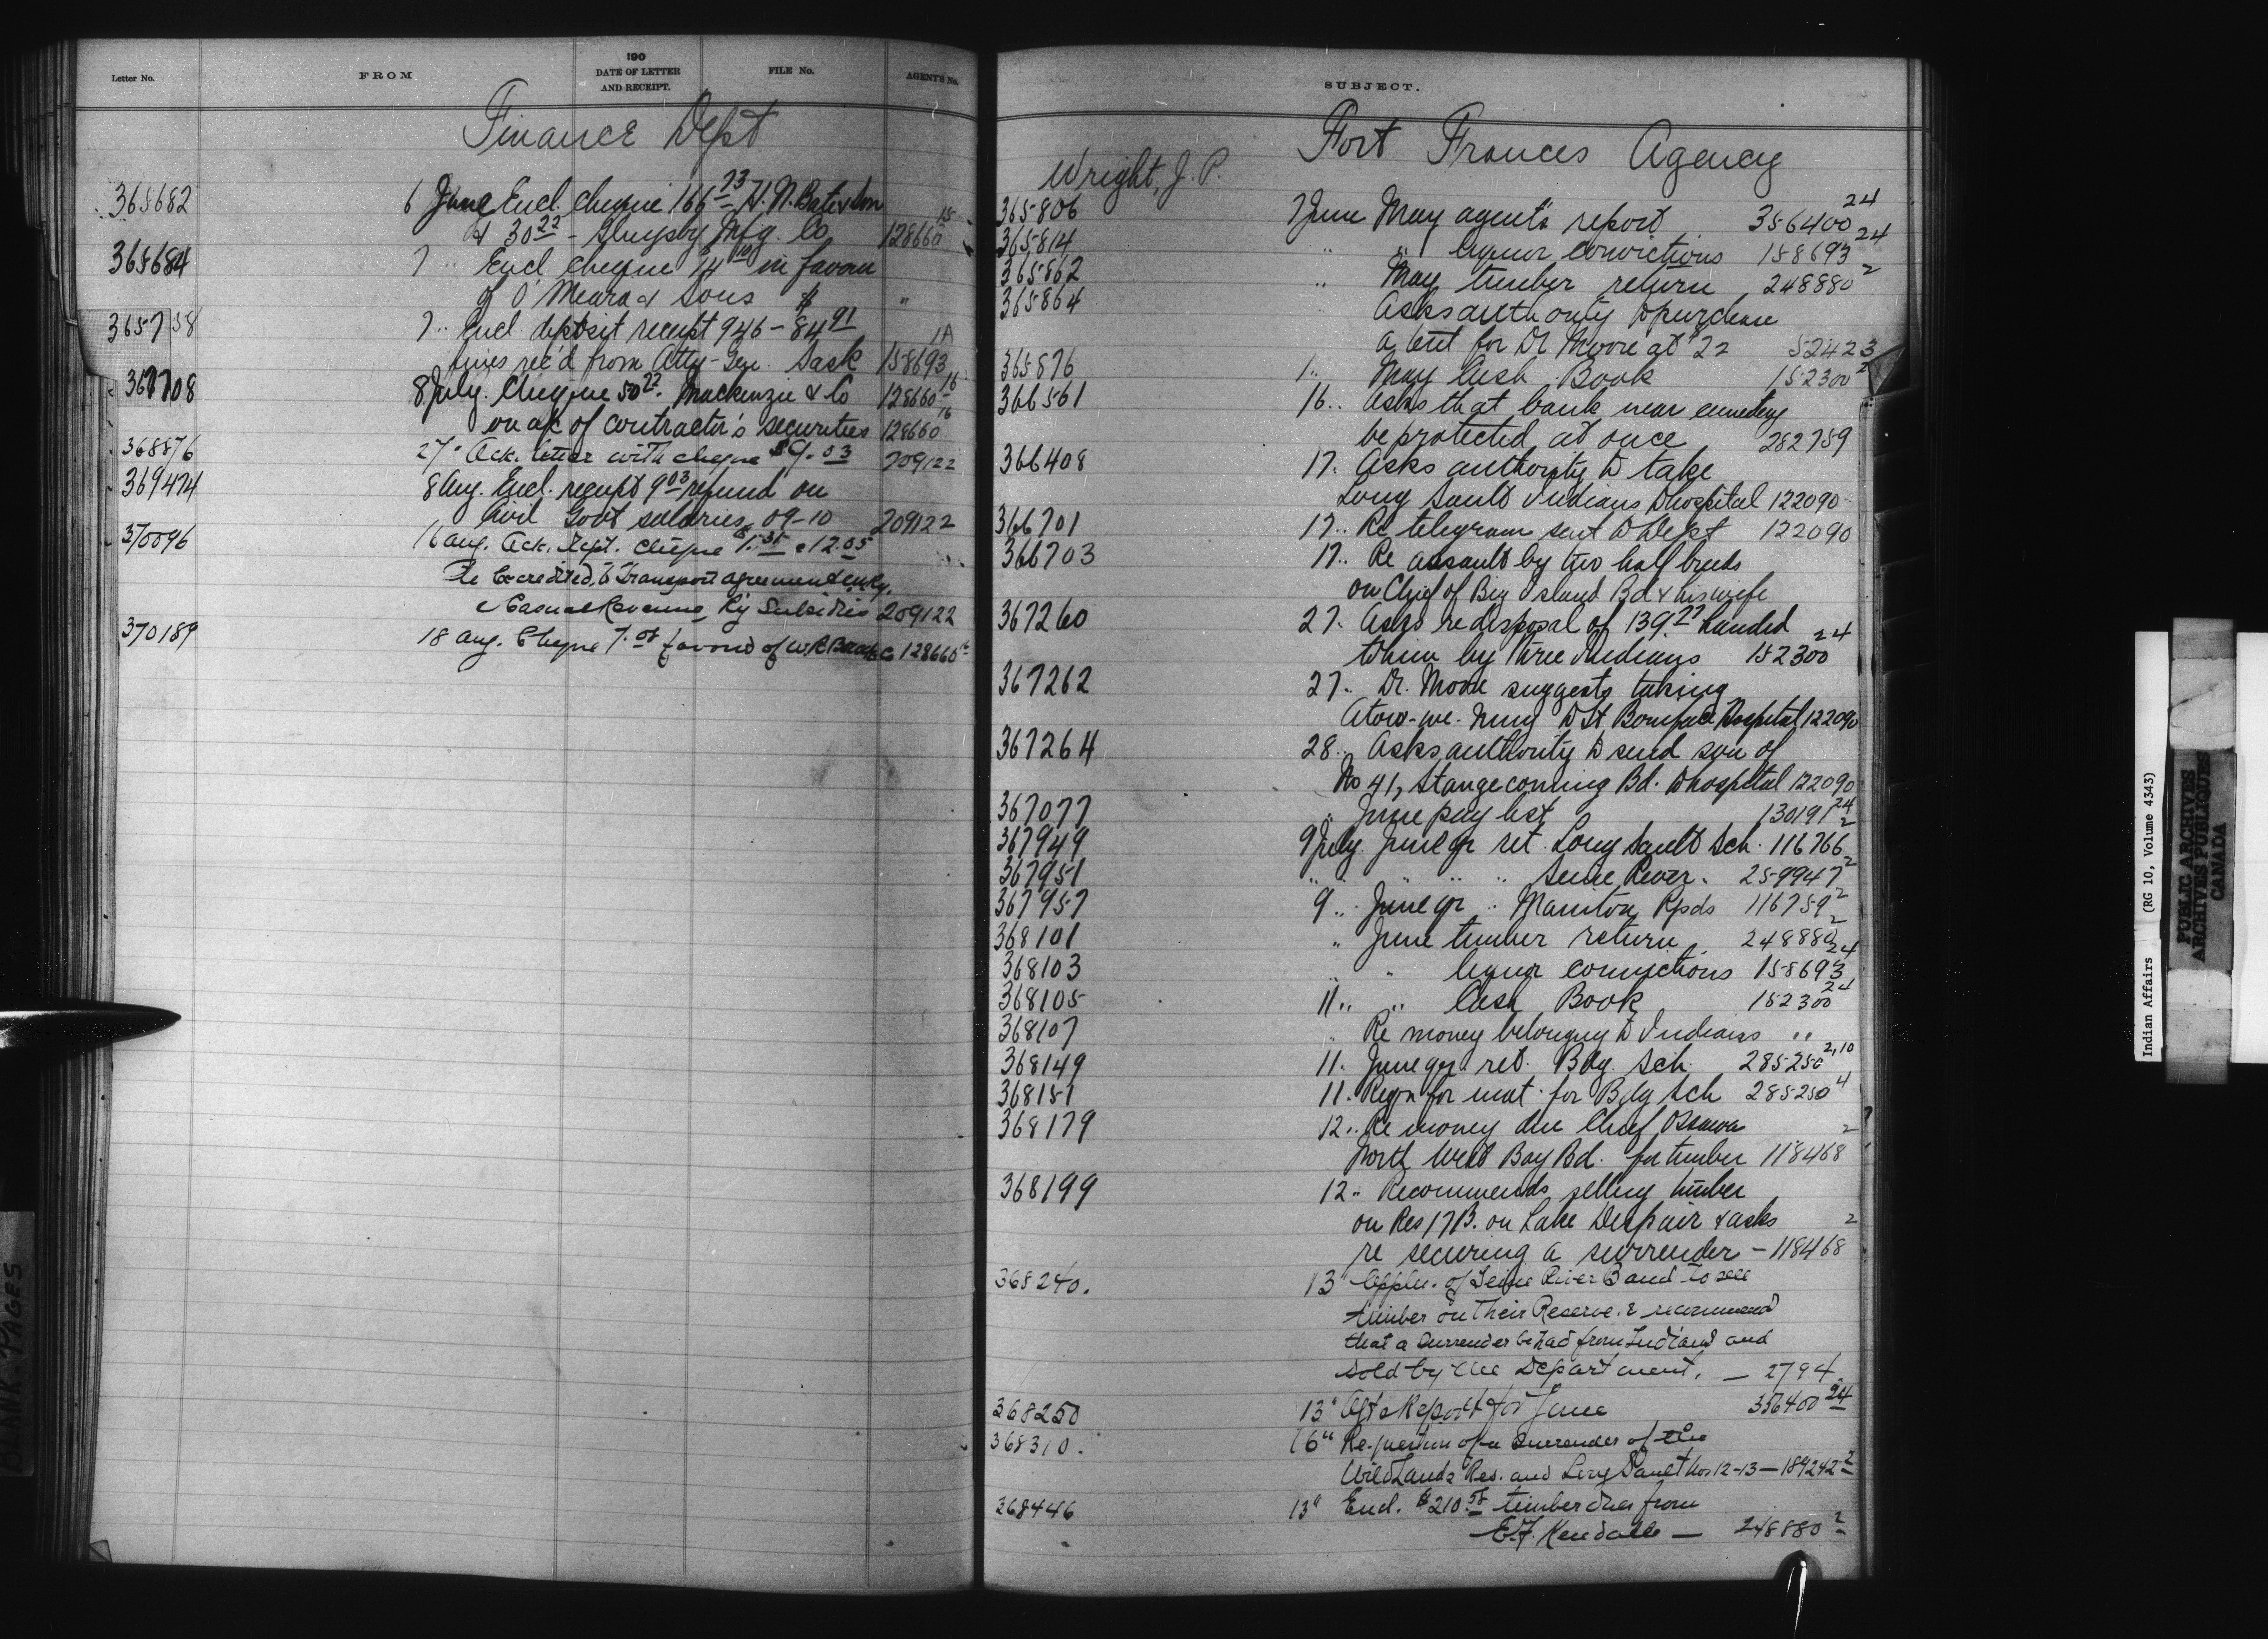 Letter No.
FROM
190
DATE OF LETTER
AND RECEIPT.
FILE No.
AGENT'S No.
Finance Dept
365682 6 June Encl. Cheque 166 73 H. N. Bate & Son
& 30 22 - Slingsby Mfg. Co 128660 15
365684 7 " Encl cheque 14 in favour
of O'Meara & Sons "
365758 7 " Encl. deposit receipt 946 - 84 91 1A
fines rec'd from Atty-Gen. Sask 158693
367708 8 July. Cheque 50 22. Mackenzie & Co 128660 16
on a/c of contractor's securities 128660 16
368876 27 " Ack. letter with cheque $9.03 209122
369474 8 Aug. Encl. receipt 9 03 refund on
Civil Govt salaries, 09-10 209122
370096 16 Aug. Ack. Rept. cheque 12.05
to be credited, to Transport agreement
& Casual Revenue, Ry Subsidies 209122
370189 18 Aug. Cheque 7. favour of 128660
SUBJECT.
Fort Frances Agency
Wright, J. P.
365806 7 June May agent's report 356400 24
365814 " " liquor convictions 158693 24
365862 " May timber return 248880 2
365864 " Asks authority to purchase
a tent for Dr Moore at $22 52423
365876 1 " May Cash Book 152300 2
366561 16 " Asks that bank near cemetery
be protected at once 282759
366408 17 " Asks authority to take
Long Sault Indians to hospital 122090
366701 17 " Re telegram sent to Dept 122090
366703 17 " Re assault by two half breeds
on Chief of Big Island Bd & his wife
367260 27 " Asks re disposal of 139. handed
to him by three Indians 152300 24
367262 27 " Dr. Moore suggests taking
to St Boniface Hospital 122090
367264 28 " Asks authority to send son of
No 41, Stangecoming Bd. to hospital 122090
367077 " June pay list 130191 24
367949 9 July. June qr ret. Long Sault Sch. 116766 2
367951 " " " " " Seine River. 259947 2
367957 9 " June qr " Manitou Rpds 116759 2
368101 " June timber return 248880 2
368103 " " liquor convictions 158693 24
368105 11 " " Cash Book 152300 24
368107 " Re money belonging to Indians "
368149 11 " June qr. ret. Bdg. Sch. 285250 2,10
368151 11 " Reqn for mat. for Bdg Sch 285250 4
368179 12 " Re money due Chief 2
North West Bay Bd. for timber 118468
368199 12 " Recommends selling timber
on Res 17B. on Lake Despair & asks 2
re securing a surrender - 118468
368240. 13 " Appln. of Seine River Band to sell
timber on their Reserve. & recommend
that a surrender be had from Indians and
sold by the Department. - 2794.
368250 13 " Agt's Report for June 356400 24
368310. 16 " Re-question of a surrender of the
Wild Lands Res. and Long Sault Nos 12-13 - 189242 2
368446 13 " Encl. $210.58 timber dues from
E.F. Kendall - 248880 2
BLANK PAGES
Indian Affairs (RG 10, Volume 4343)
PUBLIC ARCHIVES
ARCHIVES PUBLIQUES
CANADA